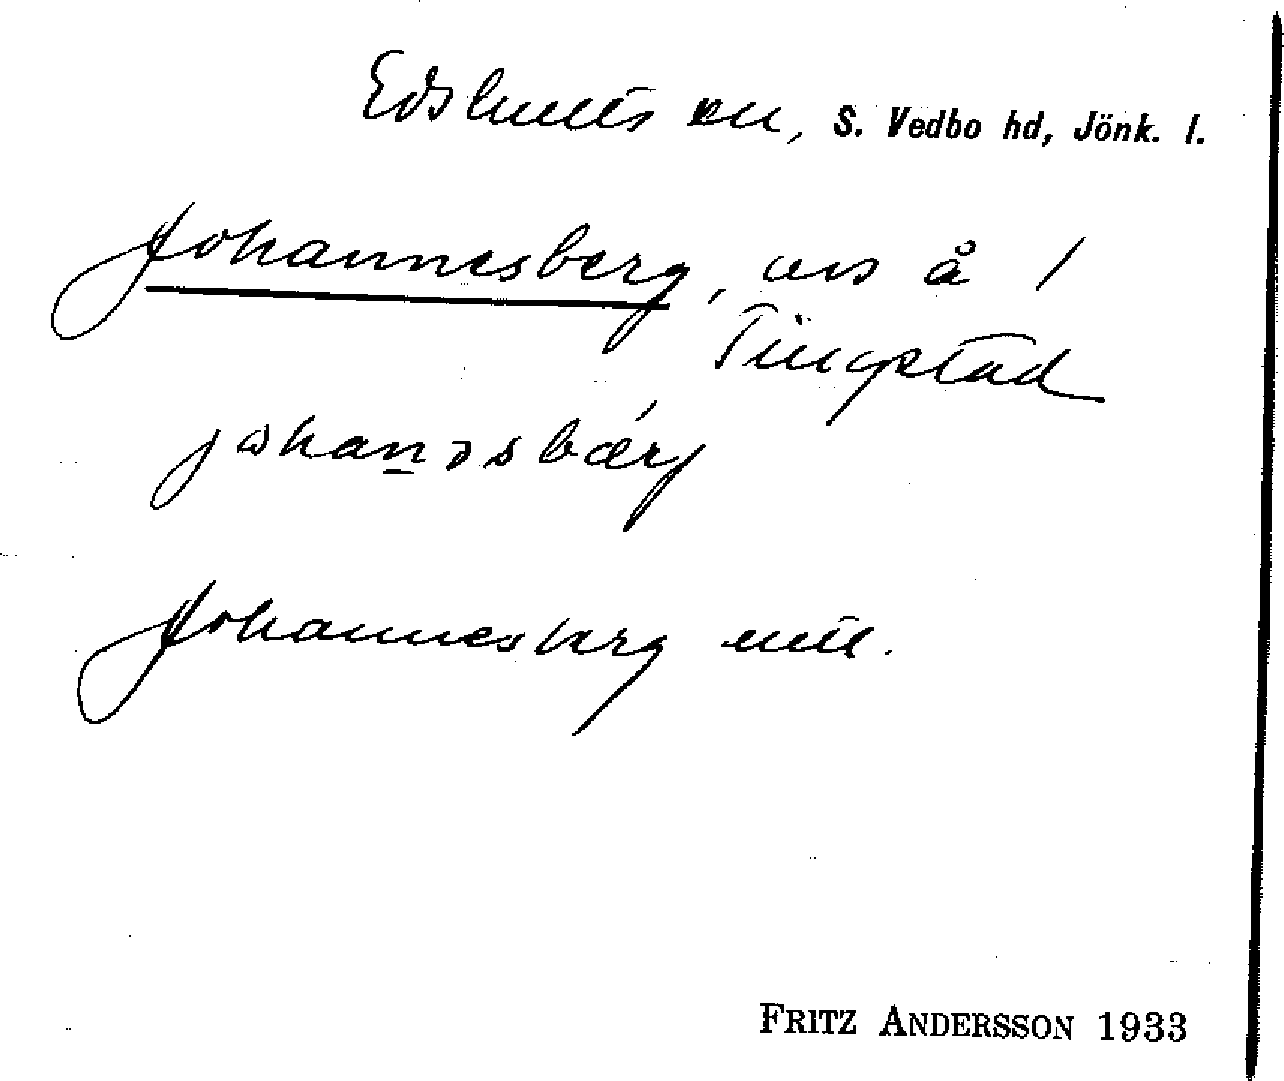 Edshults sn, S. Vedbo hd, Jönk. l.
Johannesberg, avs å /
Tingstad
johanəsbærj
Johannesberg
FRITZ ANDERSSON 1933